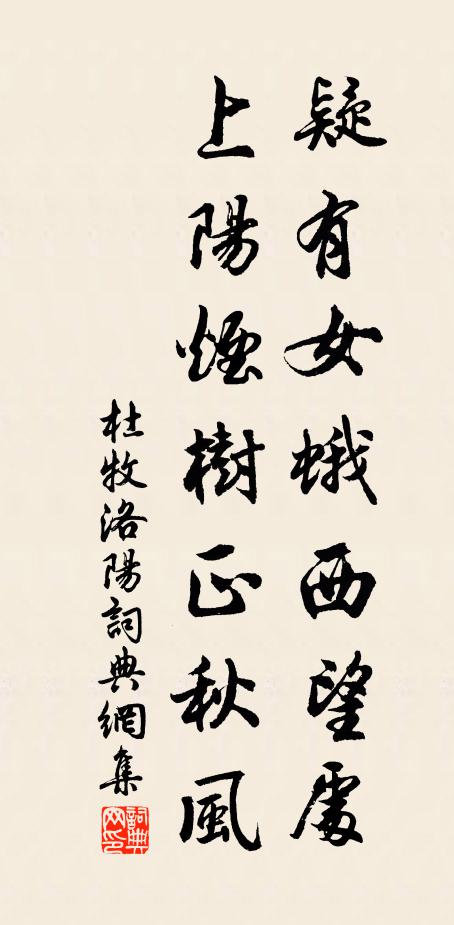 疑有女蛾西望處
上陽煙樹正秋風
杜牧洛陽詞典網集
詞典網印